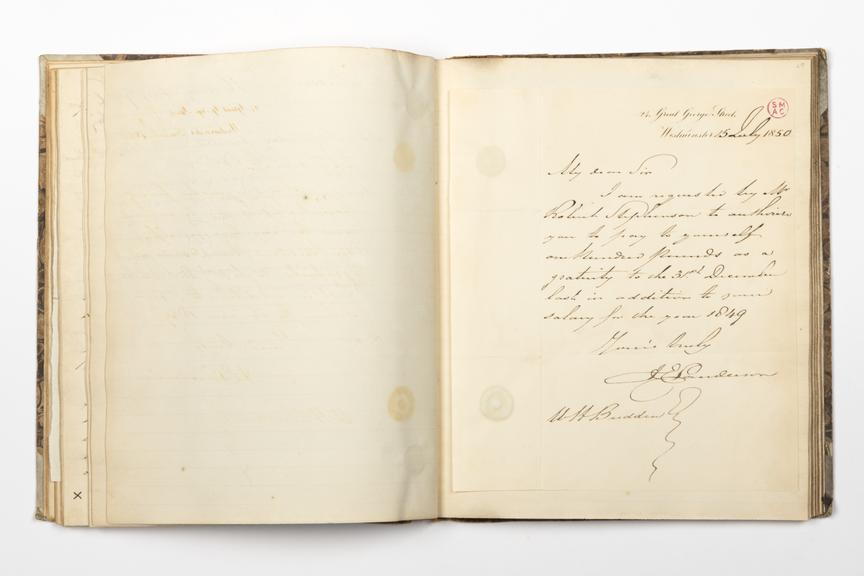 24 Great George Street
SM
AC
Westminster 15 July 1850
My dear Sir
I am requested by Mr
Robert Stephenson to authorize
you to pay to yourself
one Hundred Pounds as a
gratuity to the 31st December
last in addition to your
salary for the year 1849
Yours truly
J E Sanderson
W H Budden
X